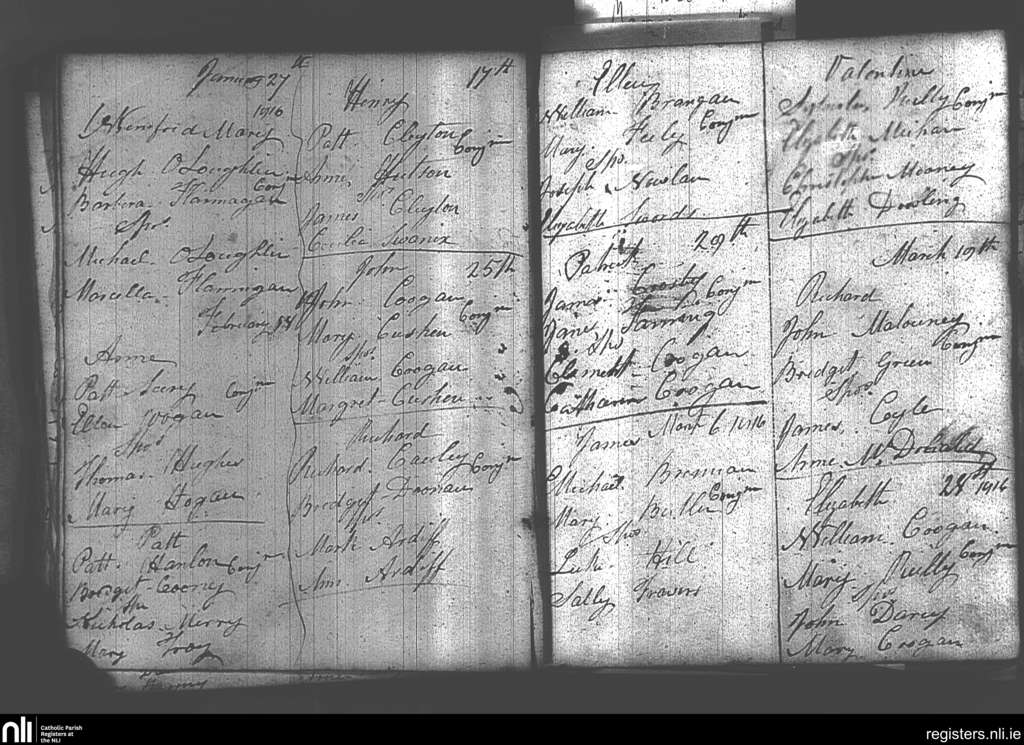 January 27th
1816
Wenefrid Mary
Hugh O'Loughlin
Conjm
Barbera Flannagan
Spo.
Michael O'Loughlin
Marcella Flannigan
February
Anne
Patt Leery Conjm
Ellen Hogan
Spo
Thomas Hughes
Mary Hogan
Patt
Patt Hanlon Conjm
Bredget Cooney
Spo
Nicholas Merry
Mary Troy
17th
Henry
Patt Clayton Conjm
Anne Hutton
Spo.
James Clayton
Cecilia
John 25th
John Coogan Conjm
Mary Cushen
Spo.
William Coogan
Margret Cushen
Richard
Richard Cauley Conjm
Bredget Doonan
Spo.
Mark Ardiff
Ann Ardiff
Ellen
William Brangan
Mary Feely Conjm
Spo.
Joseph Nowlan
Elyzabeth
29th
Patrick
James Crosby
Conjm
Jane Fanning
Spo
Clement Coogan
Catharin Coogan
James March 6 1816
Michael Brennan
Mary Butler Conjm
Spo
Luke Hill
Sally Travers
Valentine
Reilly Conjm
Elyzabeth Meehan
Spo.
Christopher Mooney
Elyzabeth Dowling
March 19th
Richard
John Malouney
Bredget Green Conjm
Spo.
James Coyle
Anne
Elyzabeth 28th 1816
William Coogan
Mary Reilly Conjm
Spo
John Darcy
Mary Coogan
nli
Catholic Parish
Registers at
the NLI
registers.nli.ie